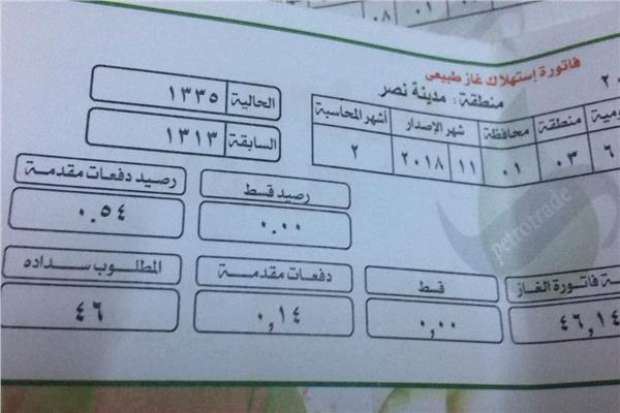 فاتورة إستهلاك غاز طبيعى
منطقة : مدينة نصر
منطقة محافظة شهر الإصدار أشهر المحاسبة
٦ ٠٣ ٠١ ١١ ٢٠١٨ ٢
الحالية ١٣٣٥
السابقة ١٣١٣
رصيد قسط رصيد دفعات مقدمة
٠.٠٠ ٠.٥٤
فاتورة الغاز قسط دفعات مقدمة المطلوب سداده
٤٦,١٤ ٠,٠٠ ٠,١٤ ٤٦
petrotrade